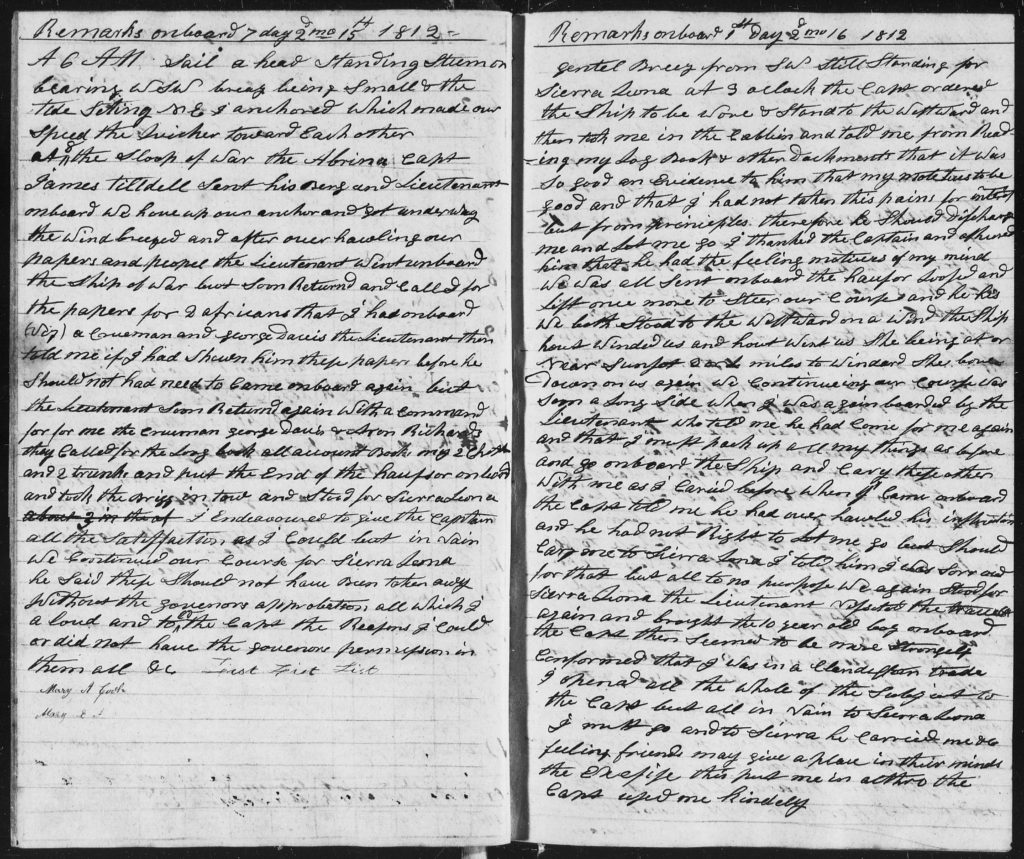 Remarks onboard 7 day 2d mo 15th 1812
A 6 AM Sail a head Standing
bearing WSW breaz being Small & the
tide Seting NE I anchored which made our
Speed the Quicker toward Each other
the Sloop of War the Abrina Capt
James tilldell Sent his Berg and Lieutenant
onboard We hove up our anchor and got under way
the Wind breezed and after over hawling our
papers and peopel the Lieutenant Went onboard
the Ship of War but Soon Returnd and Called for
the papers for 2 africans that I had onboard
(Viz) a Crueman and george Davis the Lieutenant then
told me if I had Shewn him these papers before he
Should not had need to Came onboard again but
the Lieutenant Soon Returnd again With a Command
for for me the Crueman george Davis & Aron Richards
they Called for the Long book all account Books my 2 Chists
and 2 trunks and put the End of the haufsor onboard
and took the Brigg in tow and Stood for Sierra Leona
I Endeavoured to give the Captain
all the Satisffaction as I Could but in Vain
We Continued our Course for Sierra Leona
he Said these Should not have been taken away
Without the govenors approbation all which I
a loud and to the Capt the Reasons I Could
or did not have the govenors permission in
them all &c
Mary A
Mary & A
Remarks onboard 1st Day 2d mo 16 1812
gentel Breez from SW Still Standing for
Sierra Leona at 3 oclock the Capt ordered
the Ship to be Wove & Stand to the Westward and
then took me in the Cabbin and told me from Reed-
-ing my Log Book & other Dockments that it Was
So good an Evidence to him that my motives to be
good and that I had not taken this pains for intrest
but from principles therefore he Should Discharge
me and Let me go I thanked the Captain and asured
him that he had the feeling motives of my mind
We Was all Sent onboard the haufsor Looped and
Left once more to Steer our Course and he his
We both Stood to the Westward on a Wind the Ship
hout Winded us and hout Went us She being at or
Near Sunset 2 miles to Windard She bore
Down on us again We Continueing our Course Was
Soon a Long Side When I Was again boarded by the
Lieutenant Who told me he had Come for me again
and that I must pack up all my things as before
and go onboard the Ship and Cary these other
With me as I Caried before When I Came onboard
the Capt told me he had over hawled his instructions
and he had not Right to Let me go but Should
Cary me to Sierra Leona I told him I Was Sorr and
for that but all to no purpose We again Stood for
Sierra Leona the Lieutenant Visited the
again and brought the 10 year old boy onboard
the Capt then Seemed to be more Strongely
Confirmed that I Was in a Clandestan trade
I opened all the Whole of the Subject to
the Capt but all in Vain to Sierra Leona
I must go and to Sierra he Carried me &c
feeling friends may give a place in their minds
the this put me in altho the
Capt used me kindely